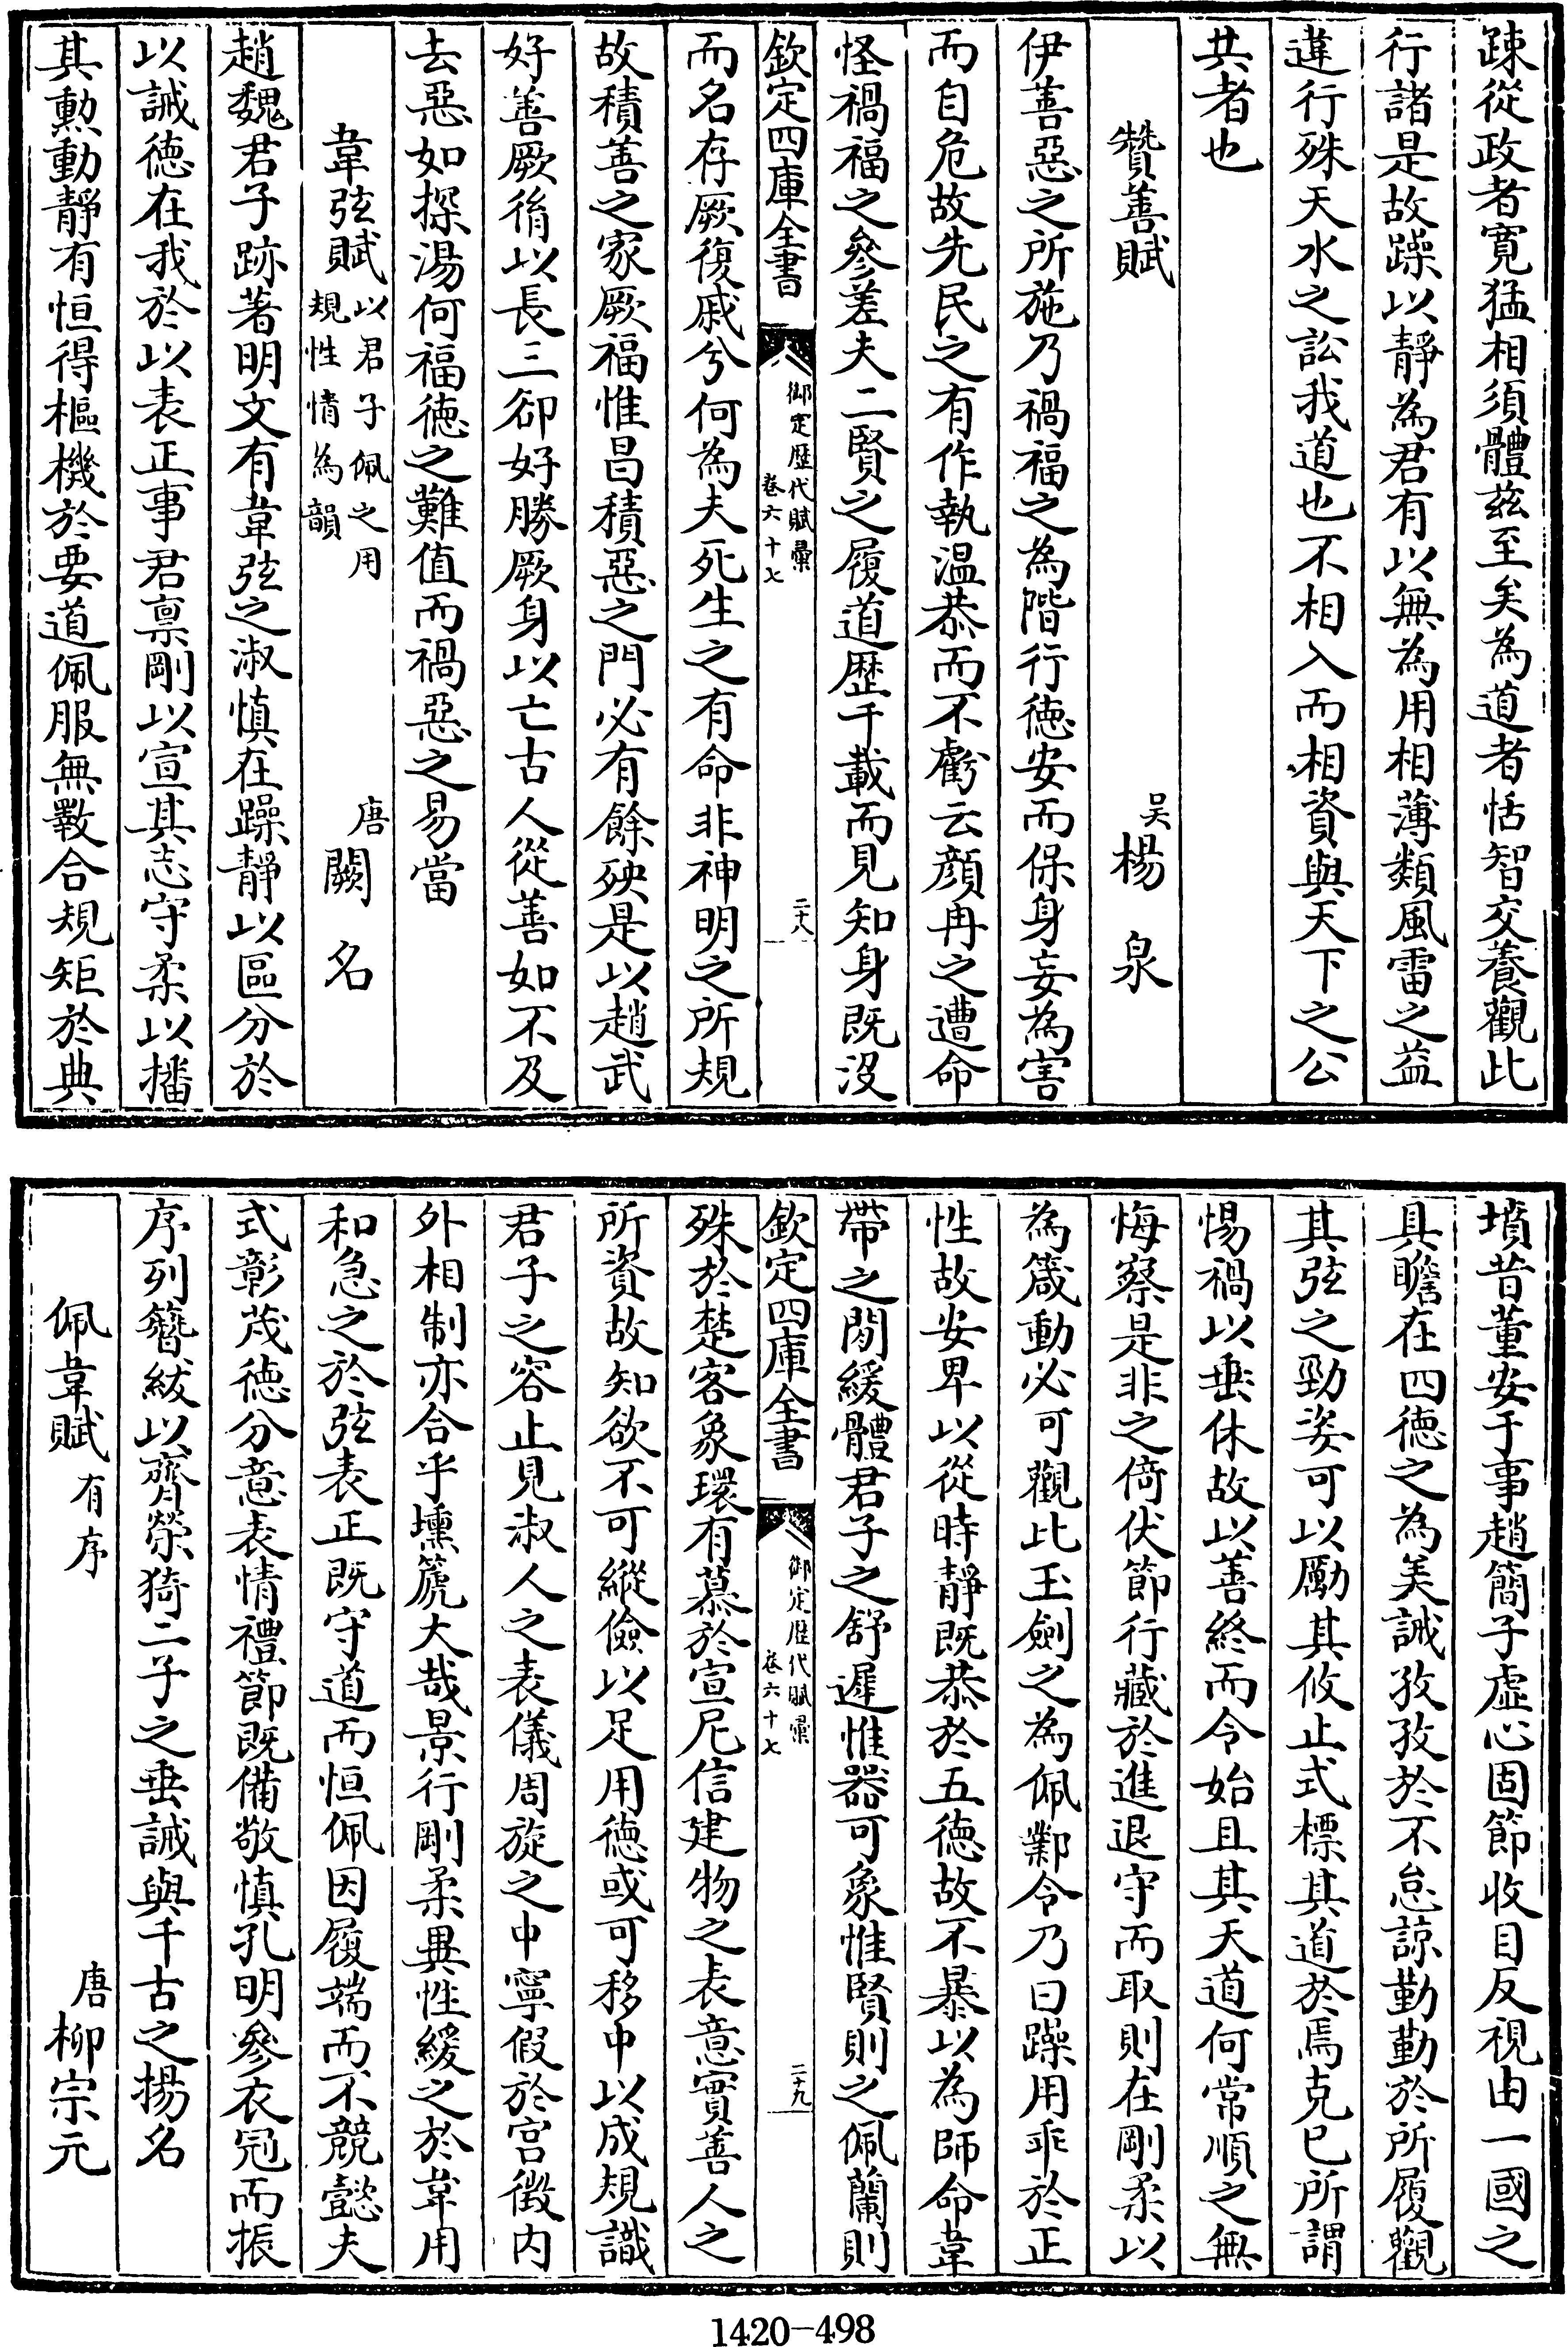 疎從政者寛猛相須體兹至矣為道者恬智交養觀此
行諸是故躁以靜為君有以無為用相薄類風雷之益
違行殊天水之訟我道也不相入而相資與天下之公
共者也
贊善賦 吴楊泉
伊善惡之所施乃禍福之為階行徳安而保身妄為害
而自危故先民之有作執温恭而不虧云顔冉之遭命
怪禍福之參差夫二賢之履道歴千載而見知身既沒
欽定四庫全書 御定歴代賦彙 卷六十七 二十八
而名存厥復戚兮何為夫死生之有命非神明之所規
故積善之家厥福惟昌積惡之門必有餘殃是以趙武
好善厥後以長三郤好勝厥身以亡古人從善如不及
去惡如探湯何福徳之難值而禍惡之易當
韋弦賦 以君子佩之用規性情為韻 唐闕名
趙魏君子跡著明文有韋弦之淑慎在躁靜以區分於
以誡徳在我於以表正事君禀剛以宣其志守柔以播
其勲動靜有恒得樞機於要道佩服無斁合規矩於典
墳昔董安于事趙簡子虚心固節收目反視由一國之
具瞻在四徳之為美誡孜孜於不怠諒勤勤於所履觀
其弦之勁姿可以勵其攸止式標其道於焉克已所謂
惕禍以垂休故以善終而令始且其天道何常順之無
悔察是非之倚伏節行藏於進退守而取則在剛柔以
為箴動必可觀比玉劍之為佩鄴令乃曰躁用乖於正
性故安卑以從時靜既恭於五徳故不暴以為師命韋
帶之閒緩體君子之舒遲惟器可象惟賢則之佩蘭則
欽定四庫全書 御定歴代賦彙 卷六十七 二十九
殊於楚客象環有慕於宣尼信建物之表意實善人之
所資故知欲不可縱儉以足用徳或可移中以成規識
君子之容止見淑人之表儀周旋之中寧假於宫徴内
外相制亦合乎壎箎大哉景行剛柔異性緩之於韋用
和急之於弦表正既守道而恒佩因履端而不競懿夫
式彰茂徳分意表情禮節既備敬慎孔明參衣冠而振
序列簪紱以齊榮猗二子之垂誡與千古之揚名
佩韋賦 有序 唐柳宗元
1420-498